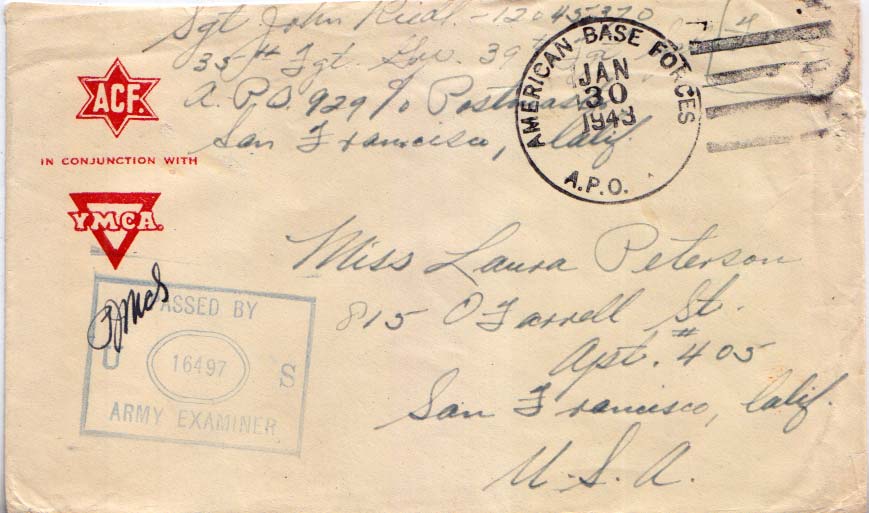 Sgt John - 12045370
35th Fgt. 39th
A.P.O. 929 % Postmaster
San Francisco, Calif.
AMERICAN BASE FORCES
JAN
30
1943
A.P.O.
ACF.
IN CONJUNCTION WITH
YMCA.
Miss Laura Peterson
815 O'Farrell St.
Apt. #405
San Francisco, Calif.
U.S.A.
PASSED BY
U 16497 S
ARMY EXAMINER